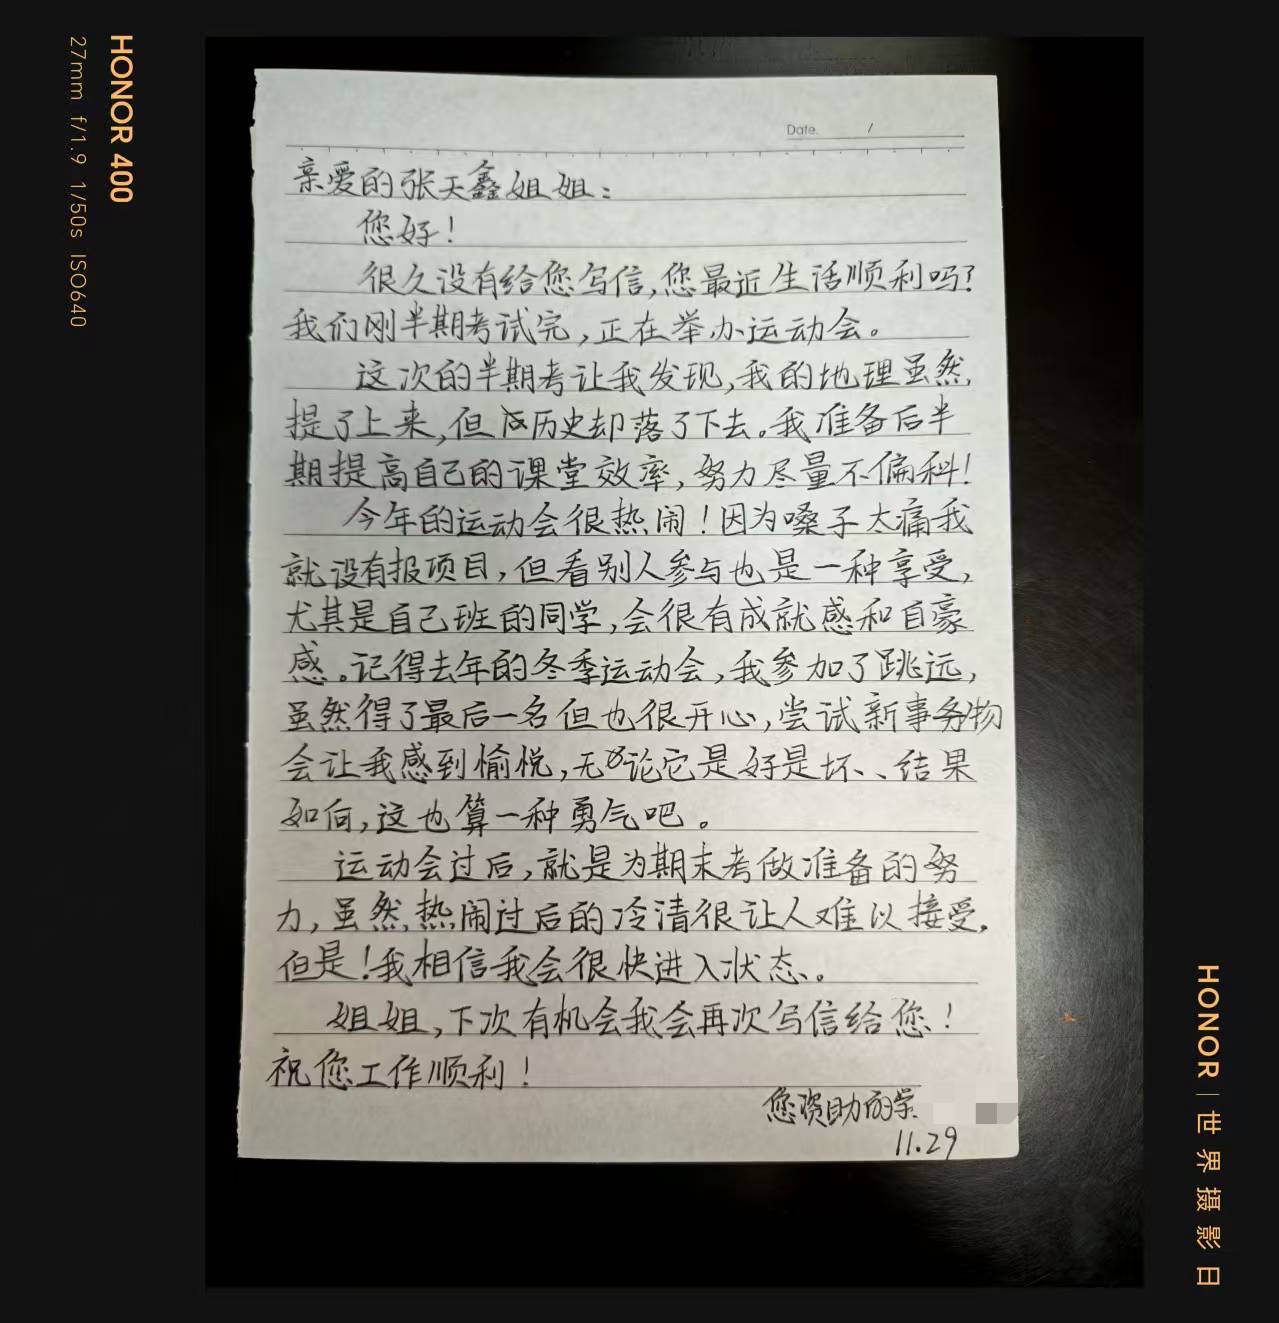 HONOR 400
27mm f/1.9 1/50s ISO640
Date. /
亲爱的张天鑫姐姐：
您好！
很久没有给您写信，您最近生活顺利吗？
我们刚半期考试完，正在举办运动会。
这次的半期考让我发现，我的地理虽然
提了上来，但历史却落了下去。我准备后半
期提高自己的课堂效率，努力尽量不偏科！
今年的运动会很热闹！因为嗓子太痛我
就没有报项目，但看别人参与也是一种享受，
尤其是自己班的同学，会很有成就感和自豪
感。记得去年的冬季运动会，我参加了跳远，
虽然得了最后一名但也很开心，尝试新事物
会让我感到愉悦，无论它是好是坏、结果
如何，这也算一种勇气吧。
运动会过后，就是为期末考做准备的努
力，虽然热闹过后的冷清很让人难以接受，
但是！我相信我会很快进入状态。
姐姐，下次有机会我会再次写信给您！
祝您工作顺利！
您资助的学
11.29
HONOR | 世界摄影日